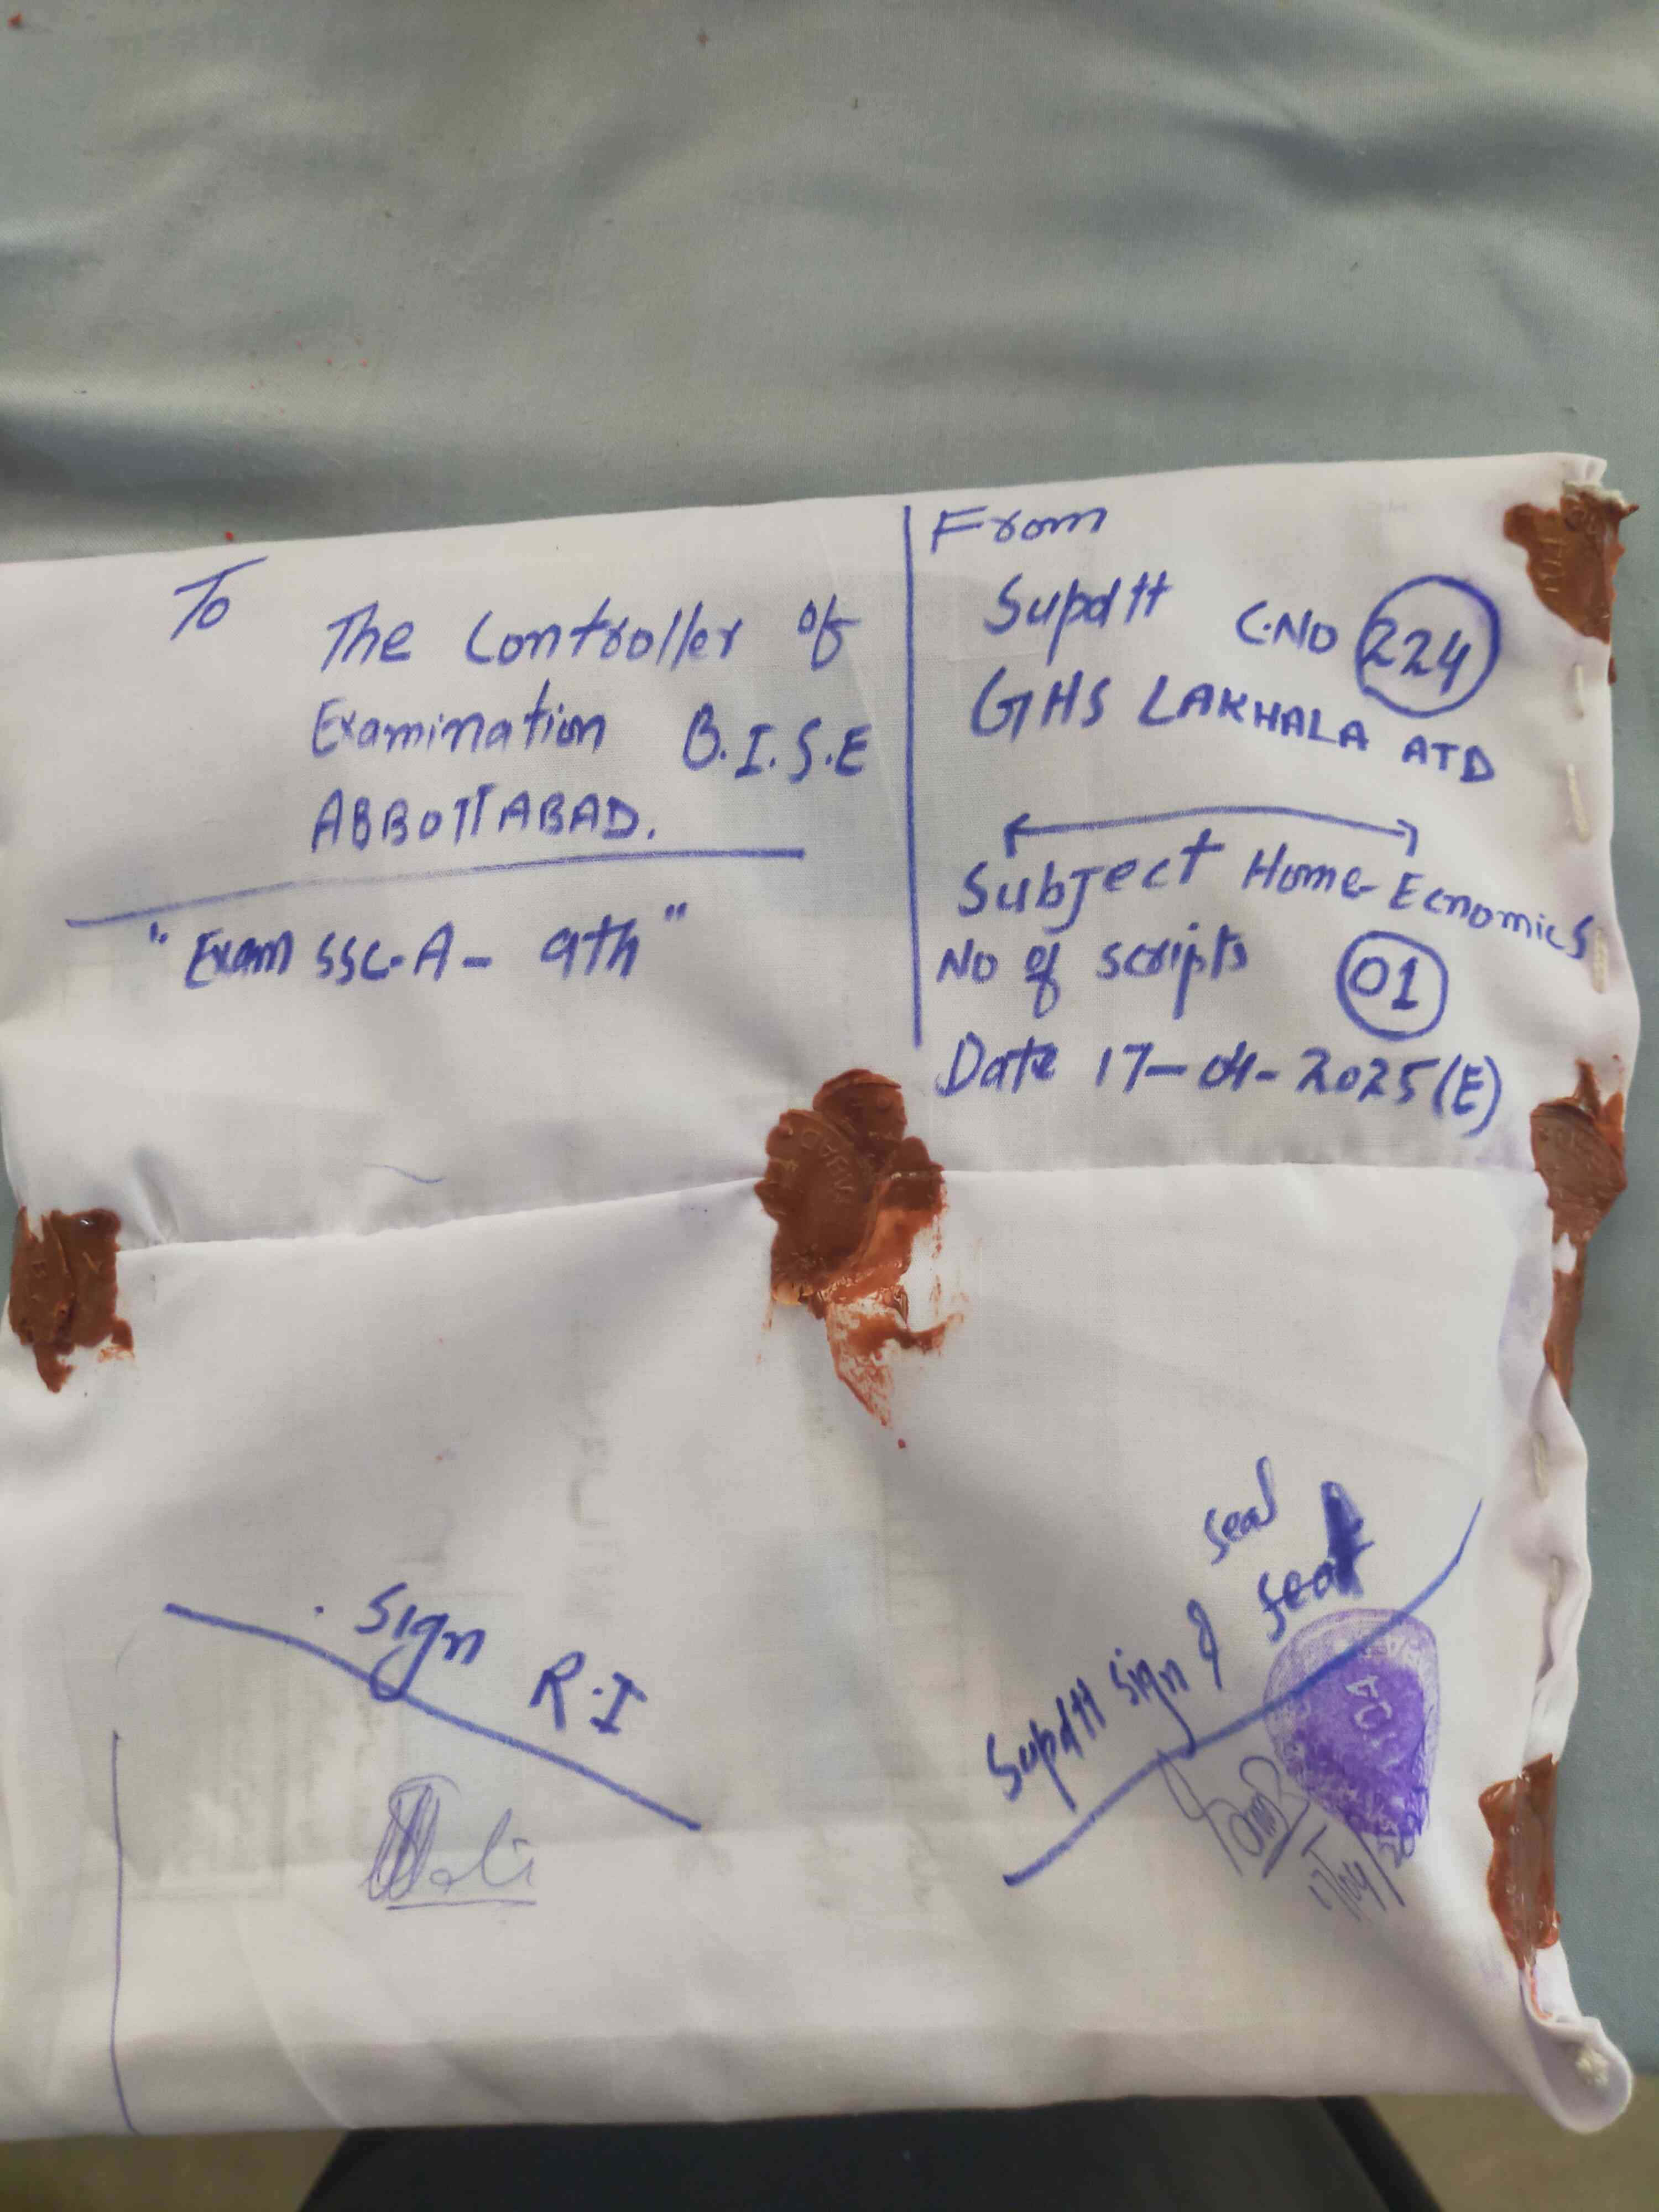 To
The Controller of
Examination B.I.S.E
ABBOTTABAD.
"Exam SSC-A- 9th"
From
Supdtt C.NO 224
GHS LAKHALA ATD
Subject Home-Ecnomics
No of scripts 01
Date 17-04-2025(E)
Sign R.I
seal
Supdtt sign &
17/04/20